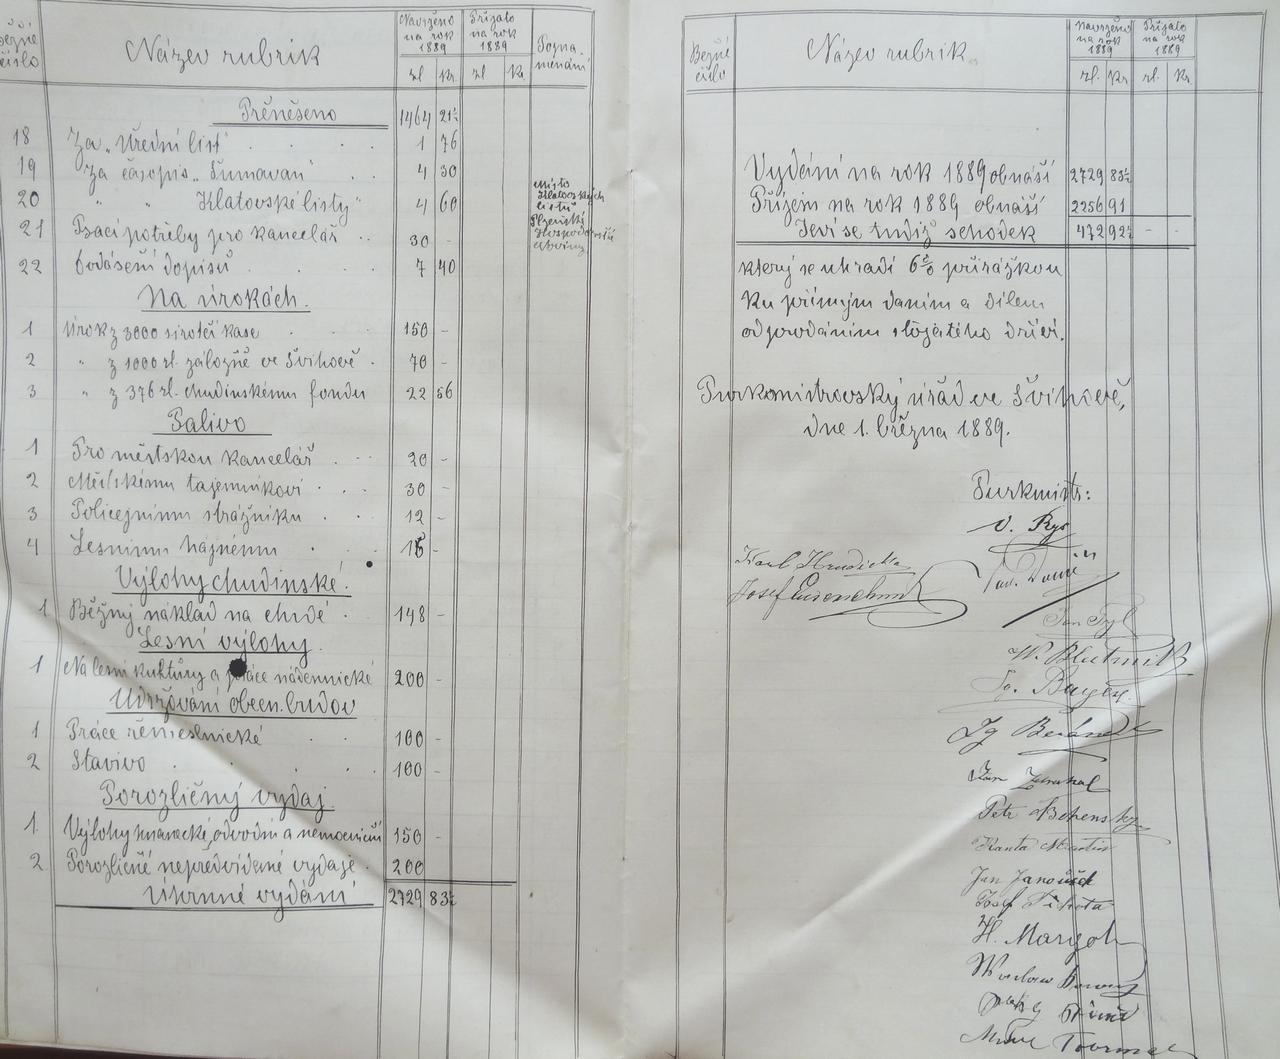 Běžné číslo Název rubrik Navrženo na rok 1889 Přijato na rok 1889 Pozna-menání
zl Kr. zl Kr
Přenešeno 1464 21½
18 Za „Úřední list" 1 76
19 Za časopis „Šumavan" 4 30
20 " " Klatovské listy" 4 60 místo Klatovských listů Plzeňský Hospodářské
21 Psací potřeby pro kancelář 30 -
22 Dodášení dopisů 7 40
Na úrokách.
1 Úrok z 3000 sirotčí kase 150 -
2 " z 1000 zl. záložně ve Švihově 70 -
3 " z 376 zl. chudinskému fondu 22 56
Palivo
1 Pro městskou kancelář 20 -
2 Městskému tajemníkovi 30 -
3 Policejnímu strážníku 12 -
4 Lesnímu hajnému -
Výlohy chudinské.
1 Běžný náklad na chudé 148 -
Lesní výlohy.
1 Na lesní kultůry a práce nádennické 200 -
Udržování obecn. budov
1 Práce řemeslnické 100 -
2 Stavivo 100 -
Porozličný vydaj.
1. Výlohy hnanecké, odvodní a nemocniční 150 -
2 Porozličné nepředvídané vydaje 200
Úhrnné vydání 2729 83½
Běžné číslo Název rubrik Navrženo na rok 1889 Přijato na rok 1889
zl. Kr zl. Kr.
Vydání na rok 1889 obnáší 2729 83½
Příjem na rok 1889 obnáší 2256 91
Jeví se tudíž schodek 472 92½ - -
který se uhradí 6% přirážkou
ku přímým daním a dílem
odprodáním stojatého dříví.
Purkmistrovský úřad ve Švihově,
dne 1. března 1889.
Purkmistr:
V. Rys
Karl Hrudička
Josef
Jan
Ig Beránek
Jan
Petr Bohenský
Martin
Jan Janoušek
Josef Tichota
H. Margoli